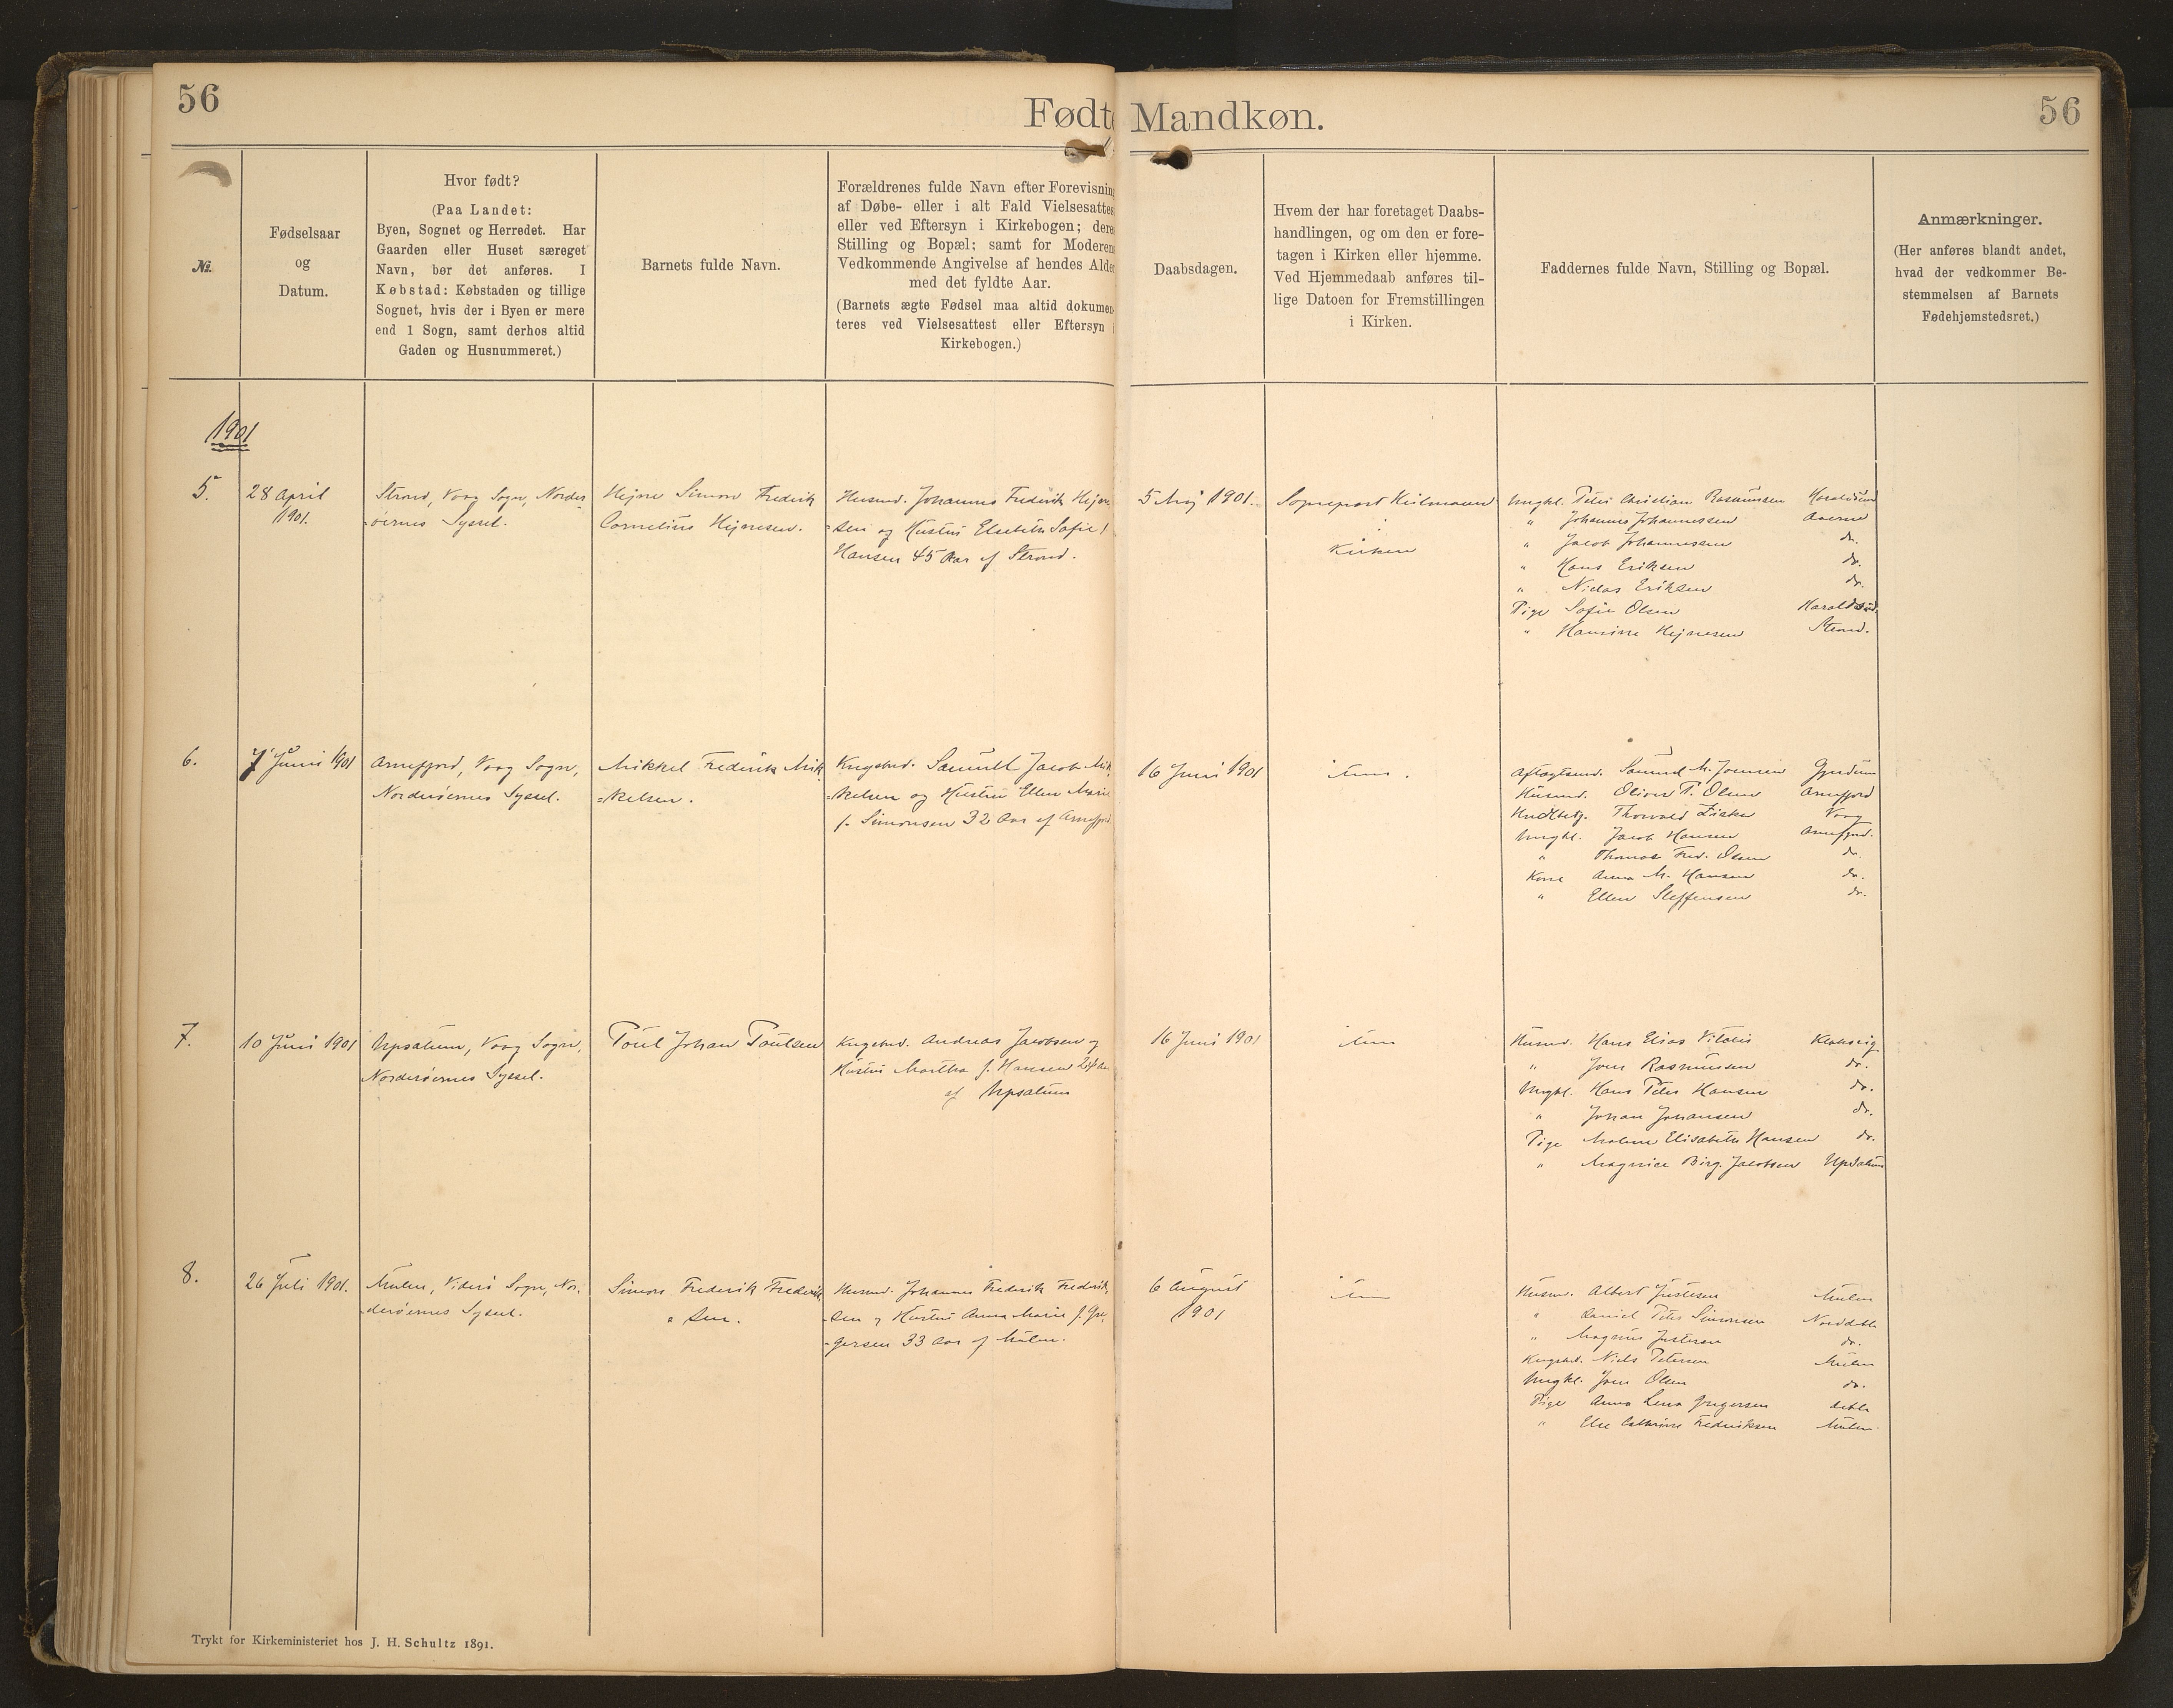 56
Fødte Mandkøn.
56
№
Fødselsaar
og
Datum.
Hvor født?
(Paa Landet:
Byen, Sognet og Herredet. Har
Gaarden eller Huset særeget
Navn, bør det anføres. I
Købstad: Købstaden og tillige
Sognet, hvis der i Byen er mere
end 1 Sogn, samt derhos altid
Gaden og Husnummeret.)
Barnets fulde Navn.
Forældrenes fulde Navn efter Forevisning
af Døbe- eller i alt Fald Vielsesattest
eller ved Eftersyn i Kirkebogen; deres
Stilling og Bopæl; samt for Moderens
Vedkommende Angivelse af hendes Alder
med det fyldte Aar.
(Barnets ægte Fødsel maa altid dokumen-
teres ved Vielsesattest eller Eftersyn i
Kirkebogen.)
Daabsdagen.
Hvem der har foretaget Daabs-
handlingen, og om den er fore-
tagen i Kirken eller hjemme.
Ved Hjemmedaab anføres til-
lige Datoen for Fremstillingen
i Kirken.
Faddernes fulde Navn, Stilling og Bopæl.
Anmærkninger.
(Her anføres blandt andet,
hvad der vedkommer Be-
stemmelsen af Barnets
Fødehjemstedsret.)
1901
5.
28 April
1901.
Strond, Vaag Sogn, Norder
-øernes Syssel.
Hejne Simon Frederik
Cornelius Hejnesen.
Husmd. Johannes Frederik Hejne
-sen og Hustru Elsebeth Sofie f
Hansen 45 Aar af Strond.
5 Maj 1901.
Sognepræst Heilmann
i
Kirken
Ungkl. Peter Christian Rasmussen Haraldsund
" Johannes Johannessen
" Jacob Johannessen do.
" Hans Eriksen do.
" Niclas Eriksen do.
Pige Sofie Olsen Haraldsund
" Hansine Hejnesen Strond.
6.
7 Juni 1901
Arnefjord, Vaag Sogn,
Norderøernes Syssel.
Mikkel Frederik Mik
=kelsen.
Kngsbd. Samuel Jacob Mik
=kelsen og Hustru Ellen Marie
f. Simonsen 32 Aar af Arnefjord
16 Juni 1901
item.
Aftægtsmd. Samuel M. Joensen
Husmd. Oliver P. Olsen Arnefjord
Thorvald Vaag
Ungkl. Jacob Hansen Arnefjord.
" Thomas Fred. Olsen do.
Kone Anna M. Hansen do.
" Ellen Steffensen do.
7.
10 Juni 1901
Upsalum, Vaag Sogn,
Norderøernes Syssel.
Poul Johan Poulsen
Kngsbd. Andreas Jacobsen og
Hustru Martha f. Hansen
af Upsalum
16 Juni 1901
item
Husmd. Hans Elias Vitalis Klaksvig
" Joen Rasmussen do.
Ungkl. Hans Peter Hansen do.
" Johan Johansen do.
Pige Malene Elisabeth Hansen do.
" Birg. Jacobsen Upsalum
8.
26 Juli 1901.
Mulen, Viderø Sogn, Nor-
derøernes Syssel.
Simon Frederik Frederik
=sen.
Husmd. Johannes Frederik Frederik
-sen og Hustru Anna Marie f. Gre-
-gersen 33 Aar af Mulen.
6 August
1901
item
Husmd. Albert Justesen Mulen
" Daniel Peter Simonsen Norddeble
" Magnus Justesen do.
Kngsbd. Niels Petersen Mulen
Ungkl. Joen Olsen do.
Pige Anna Lena Gregersen
" Else Cathrine Frederiksen Mulen.
Trykt for Kirkeministeriet hos J. H. Schultz 1891.